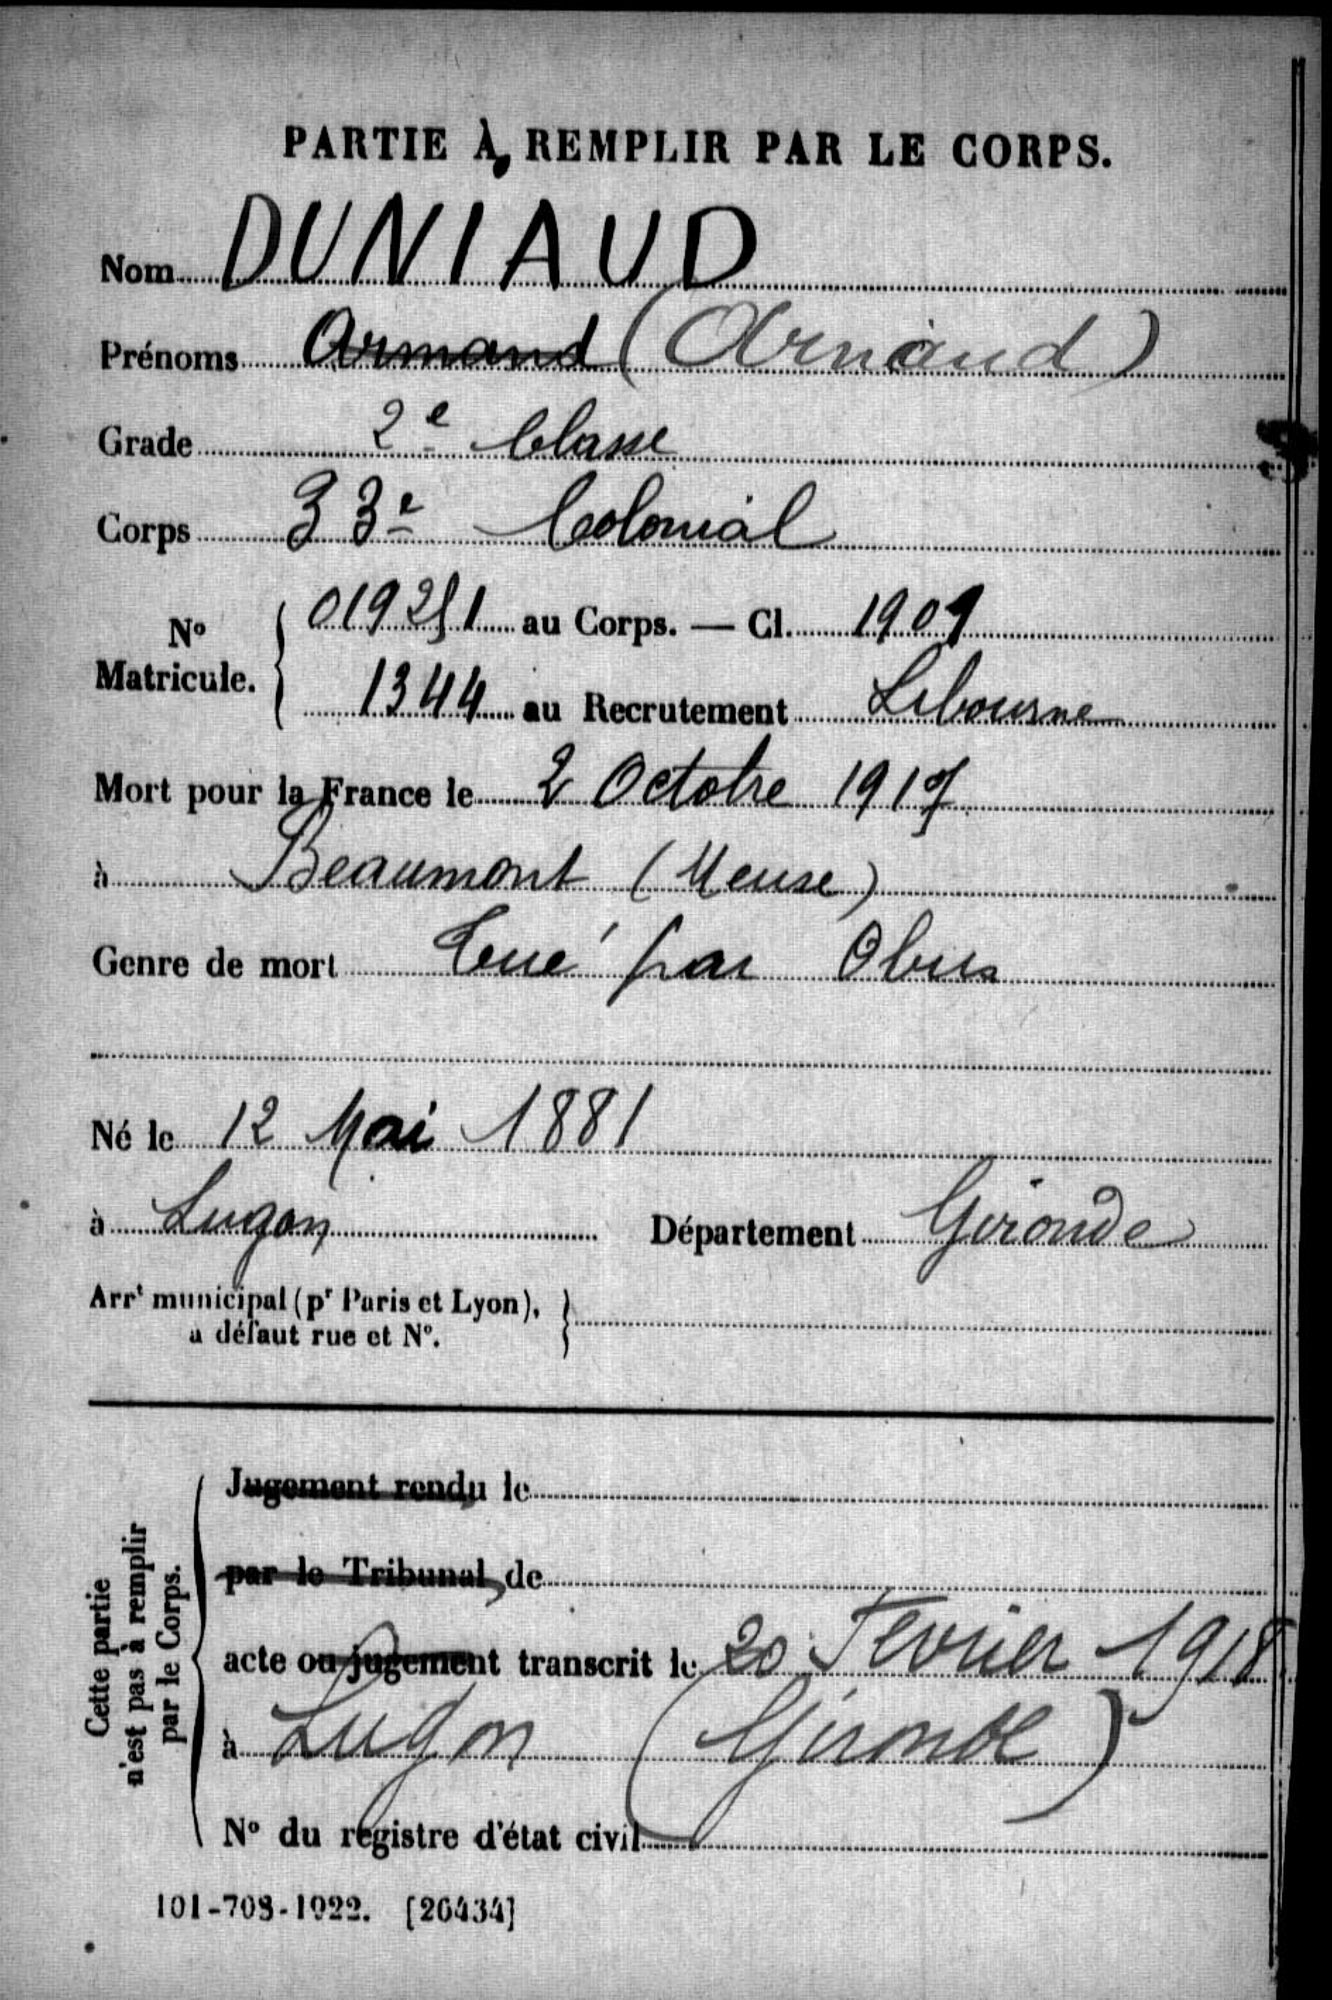 PARTIE À REMPLIR PAR LE CORPS.
Nom DUNIAUD
Prénoms Armand (Arnaud)
Grade 2e Classe
Corps 33e Colonial
No Matricule. au Corps. — Cl.
1344 au Recrutement Libourne
Mort pour la France le 2 Octobre 1917
à Beaumont (Meuse)
Genre de mort Tué par Obus
Né le 12 Mai 1881
à Lugon Département Gironde
Arrt municipal (pr Paris et Lyon),
a défaut rue et No.
Cette partie
n'est pas à remplir
par le Corps.
Jugement rendu le
par le Tribunal de
acte ou jugement transcrit le 20 Fevrier 1918
à Lugon (Gironde)
No du registre d'état civil
101-708-1922. [26434]